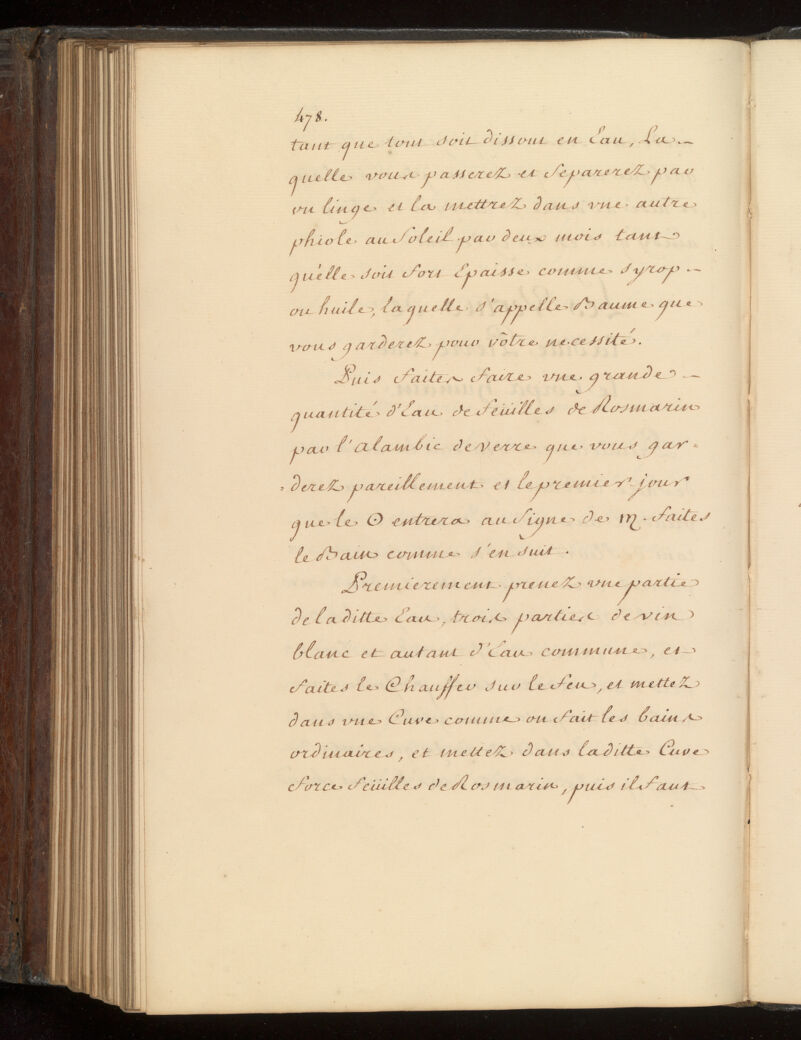 478.
tant que tout soit dissout en Eau, La-
quelle vous passerez et Separerez par
vn linge et la mettrez dans vne autre
phiole au Soleil par deux mois tant
qu'elle soit Fort Epaisse comme syrop -
ou huile, laquelle s'appelle Baume que
vous garderez pour vôtre necessité.
Puis Faites Faire vne grande -
quantité d'Eau de Feüilles de Rosmarin
par l'Alambic de verre que vous gar-
-derez pareillement et le premier jour
que le ☉ entrera au Signe de ♍. Faites
le Bain comme s'en suit.
Premierement prenez vne partie
de laditte Eau, trois parties de vin
blanc et autant d'Eau commune, et
Faites le Chauffer sur le Feu, et mettez
dans vne Cuve comme on Fait les bains
ordinaires, et mettez dans laditte Cuve
Force Feüilles de Rosmarin, puis il Faut